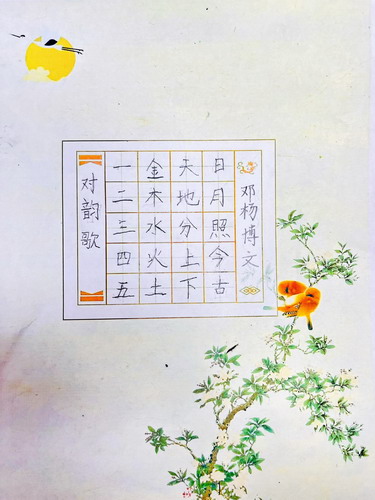 对韵歌
一二三四五
金木水火土
天地分上下
日月照今古
邓杨博文